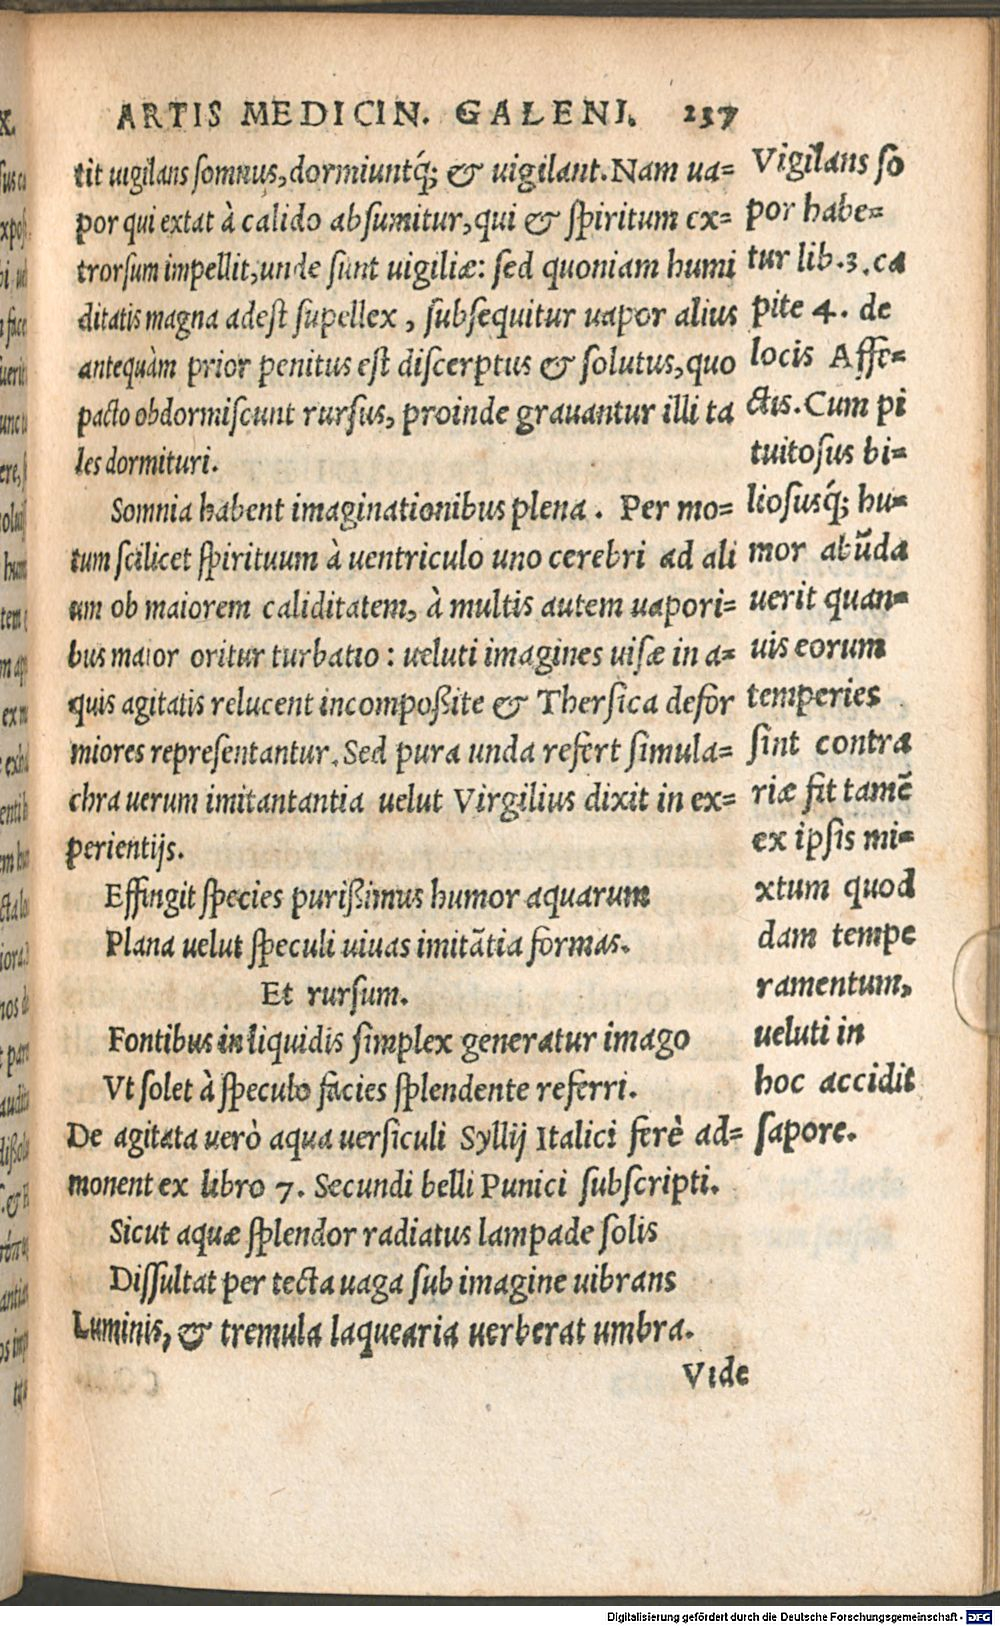 ARTIS MEDICIN. GALENI. 237
tit uigilans somnus, dormiuntq́; & uigilant. Nam ua=
por qui extat à calido absumitur, qui & spiritum ex=
trorsum impellit, unde sunt uigiliæ: sed quoniam humi
ditatis magna adest supellex, subsequitur uapor alius
antequàm prior penitus est discerptus & solutus, quo
pacto obdormiscunt rursus, proinde grauantur illi ta
les dormituri.
Somnia habent imaginationibus plena. Per mo=
tum scilicet spirituum à uentriculo uno cerebri ad ali
um ob maiorem caliditatem, à multis autem uapori=
bus maior oritur turbatio: ueluti imagines uisæ in a=
quis agitatis relucent incompoßite & Thersica defor
miores representantur. Sed pura unda refert simula=
chra uerum imitantantia uelut Virgilius dixit in ex=
perientijs.
Effingit species purißimus humor aquarum
Plana uelut speculi uiuas imitātia formas.
Et rursum.
Fontibus in liquidis simplex generatur imago
Vt solet à speculo facies splendente referri.
De agitata uerò aqua uersiculi Syllij Italici ferè ad=
monent ex libro 7. Secundi belli Punici subscripti.
Sicut aquæ splendor radiatus lampade solis
Dissultat per tecta uaga sub imagine uibrans
Luminis, & tremula laquearia uerberat umbra.
Vide
Vigilans so
por habe=
tur lib. 3. ca
pite 4. de
locis Affe=
ctis. Cum pi
tuitosus bi=
liosusq́; hu=
mor abūda
uerit quan=
uis eorum
temperies
sint contra
riæ fit tamē
ex ipsis mi=
xtum quod
dam tempe
ramentum,
ueluti in
hoc accidit
sapore.
Digitalisierung gefördert durch die Deutsche Forschungsgemeinschaft - DFG